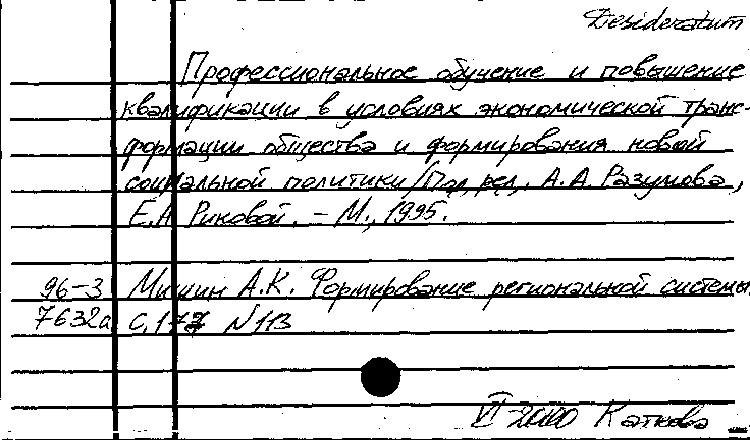 Desideratum
Профессиональное обучение и повышение
квалификации в условиях экономической транс-
формации общества и формирования новой
социальной политики / Под ред. А.А. Разумова,
Е.А Риковой. – М., 1995.
96-3 Мишин А.К. Формирование региональной системы
7632а С.177 N113
VI 2000 Каткова